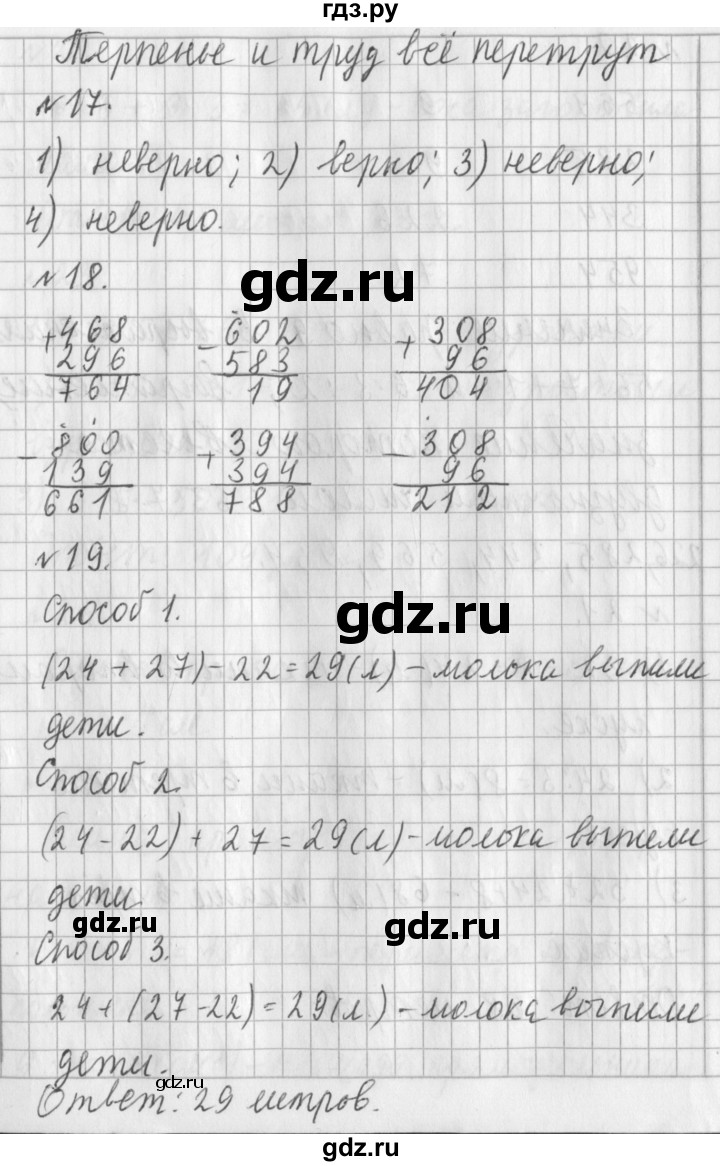 гдз.ру
Терпенье и труд всё перетрут
№17.
1) неверно; 2) верно; 3) неверно;
4) неверно.
№18.
gdz.ru
+468 -602 +308
296 583 96
764 19 404
-800 +394 -308
139 394 96
661 788 212
№19.
Способ 1.
gdz.ru
(24 + 27) - 22 = 29 (л) - молока выпили
дети.
Способ 2.
(24 - 22) + 27 = 29 (л) - молока выпили
дети.
gdz.ru gdz.ru
Способ 3.
24 + (27 - 22) = 29 (л.) - молока выпили
дети.
gdz.ru
Ответ: 29 литров.
gdz.ru